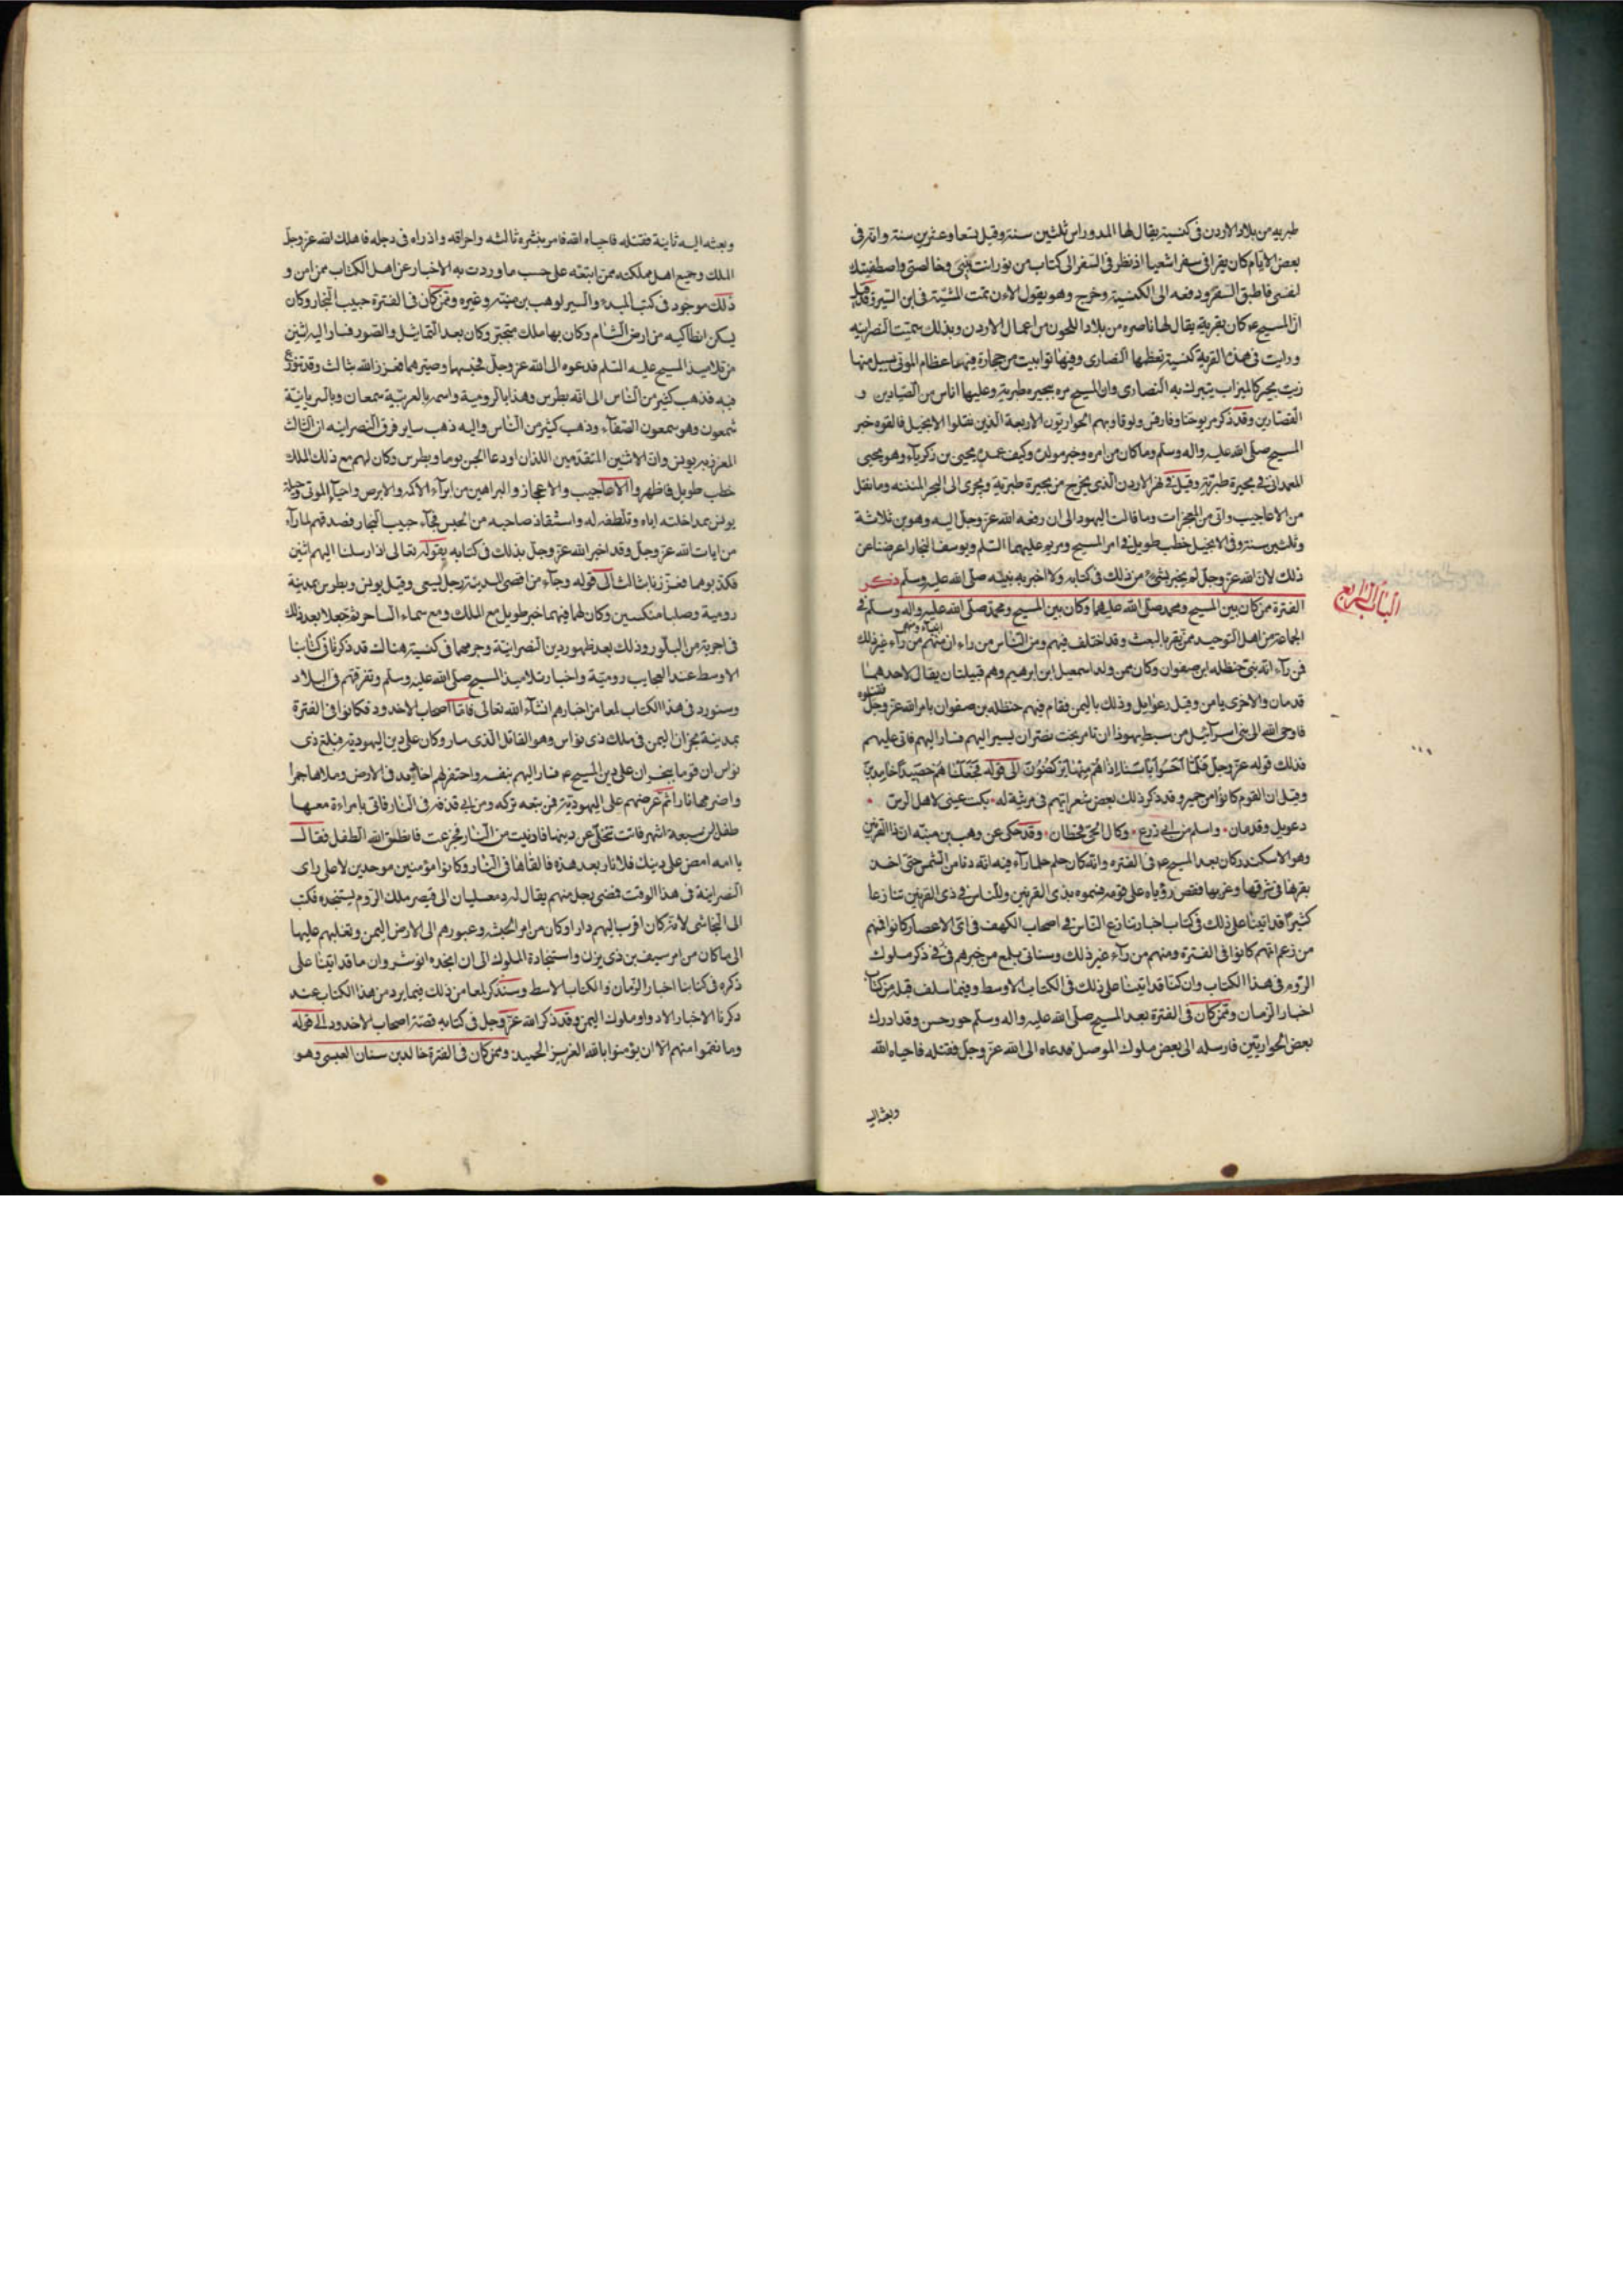 طبريه من بلاد الاردن فى كنيسة يقال لها المدوراس ثلثين سنة وقيل تسعا وعشرين سنة وانه فى
بعض الايام كان يقرا فى سفر اشعيا اذ نظر فى السفر الى كتاب من نور انت نبيى وخالصتى واصطفيتك
لنفسى فاطبق السفر ودفعه الى الكنيسة وخرج وهو يقول الاءن تمت المشية فى ابن البشر وقد قيل
ان المسيح عم كان بقرية يقال لها ناصره من بلاد اللجون من اعمال الاردن وبذلك سميت النصرانيه
ورايت فى هذه القرية كنيسة تعظمها النصارى وفيها توابيت من حجارة فيها عظام الموتى يسيل منها
زيت يخثر كالميزاب يتبرك به النصارى وان المسيح مر ببحيره طبرية وعليها اناس من الصيادين و
القصارين وقد ذكر مريوحنا وفارقس ولوقا وهم الحواريون الاربعة الذين نقلوا الانجيل فالقوه خبر
المسيح صلى الله عليه واله وسلم وما كان من امره وخبر مولده وكيف عمده يحيى بن زكرياء وهو يحيى
المعمدانى فى بحيرة طبرية وقيل فى نهر الاردن الذى يخرج من بحيرة طبرية ويجرى الى البحر المنتنه وما نقل
من الاعاجيب واتى من المعجزات وما قالت اليهود الى ان رفعه الله عز وجل اليه وهو بن ثلاثة
وثلثين سنة وفى الانجيل خطب طويل فى امر المسيح ومريم عليهما السلم ويوسف النجار اعرضنا عن
ذلك لان الله عز وجل لم يخبر بشئ من ذلك فى كتابه ولا اخبر به نبيه صلى الله عليه وسلم ذكر
الباب الرابع
الفترة ممن كان بين المسيح ومحمد صلى الله عليهما وكان بين المسيح ومحمد صلى الله عليه واله وسلم فى
الجماعة من اهل التوحيد ممن يقر بالبعث وقد اختلف فيهم ومن الناس من راء ان منهم انبياء ومنهم من راء غير ذلك
فمن راء انه نبى حنظله ابن صفوان وكان ممن ولد اسمعيل ابن ابرهيم وهم قبيلتان يقال لاحدهما
قدمان والاخرى يامن وقيل رعوايل وذلك باليمن فقام فيهم حنظله بن صفوان بامر الله عز وجل فقتلوه
فاوحى الله الى بنى اسرآئيل من سبط يهوذا ان تامر بخت نصر ان يسير اليهم فسار اليهم فاتى عليهم
فذلك قوله عز وجل فلما احسوا بأسنا اذا هم منها يركضون الى قوله فجعلناهم حصيدا خامدين
وقيل ان القوم كانوا من حمير وقد ذكر ذلك بعض شعرايهم فى مرثية له بكت عينى لاهل الرس
دعويل وقدمان واسلم من ابى زرع وكال الحى قحطان وقد حكى عن وهب بن منبه ان ذا القرنين
وهو الاسكندر كان بعد المسيح عم فى الفتره وانه كان حلم حلما رآء فيه انه دنا من الشمس حتى اخذ
بقرنها فى شرقها وغربها فقص رؤياه على قومه فسموه بذى القرنين وللناس فى ذى القرنين تنازعا
كثيرا قد اتينا على ذلك فى كتاب اخبار تنازع الناس فى اصحاب الكهف فى اى الاعصار كانوا فمنهم
من زعم انهم كانوا فى الفترة ومنهم من رآء غير ذلك وسناتى بلمع من خبرهم فى ذكر ملوك
الروم فى هذا الكتاب وان كنا قد اتينا على ذلك فى الكتاب الاوسط وفيما سلف قبله من كتاب
اخبار الزمان وممن كان فى الفترة بعد المسيح صلى الله عليه واله وسلم جورجس وقد ادرك
بعض الحواريين فارسله الى بعض ملوك الموصل فدعاه الى الله عز وجل فقتله فاحياه الله
وبعثه اليه
وبعثه اليه ثانية فقتله فاحياه الله فامر بنشره ثالثه واحراقه واذراه فى دجله فاهلك الله عز وجل
الملك وجميع اهل مملكته ممن اتبعه على حسب ما وردت به الاخبار عن اهل الكتاب ممن امن و
ذلك موجود فى كتب المبدء والسير لوهب بن منبه وغيره وممن كان فى الفترة حبيب النجار وكان
يسكن انطاكيه من ارض الشام وكان بها ملك متجبر وكان يعبد التماثيل والصور فسار اليه اثنين
من تلاميذ المسيح عليه السلم فدعوه الى الله عز وجل فحبسهما وضربهما فعزز الله بثالث وقد تنوزع
فيه فذهب كثير من الناس الى انه بطرس وهذا بالرومية واسمه بالعربية سمعان وبالسريانية
شمعون وهو سمعون الصفآء وذهب كثير من الناس واليه ذهب ساير فرق النصرانيه ان الثالث
المعزز به بولس وان الاثنين المتقدمين اللذان اودعا الحبس توما وبطرس وكان لهم مع ذلك الملك
خطب طويل فاظهروا الاعاجيب والاعجاز والبراهين من ابرآء الاكمه والابرص واحيآء الموتى وحيلة
بولس بمداخلته اياه وتلطفه له واستنقاذ صاحبه من الحبس فجآء حبيب النجار فصدقهم لما رآء
من ايات الله عز وجل وقد اخبر الله عز وجل بذلك فى كتابه بقوله تعالى اذ ارسلنا اليهم اثنين
فكذبوهما فعززنا بثالث الى قوله وجآء من اقصى المدينة رجل يسعى وقيل بولس وبطرس بمدينة
رومية وصلبا منكسين وكان لهما فيهما خبر طويل مع الملك ومع سماء الساحر ثم جعلا بعد ذلك
فى اجربة من البلور وذلك بعد ظهور دين النصرانية وحرمهما فى كنيسة هناك قد ذكرنا فى كتابنا
الاوسط عند العجايب رومية واخبار تلاميذ المسيح صلى الله عليه وسلم وتفرقهم فى البلاد
وسنورد فى هذا الكتاب لمعا من اخبارهم انشآء الله تعالى فاما اصحاب الاخدود فكانوا فى الفترة
بمدينة نجران اليمن فى ملك ذى نواس وهو القاتل الذى سار وكان على دين اليهودية فبلغ ذى
نواس ان قوما بنجران على دين المسيح عم فسار اليهم بنفسه واحتفر لهم اخاديد فى الارض وملاها جمرا
واضرمها نارا ثم عرضهم على اليهودية فمن تبعه تركه ومن ابى قذفه فى النار فاتى بامراءة معها
طفل ابن سبعة اشهر فابت تتخلى عن دينها فادنيت من النار فجزعت فانطق الله الطفل فقال
يا امه امضى على دينك فلا نار بعد هذه فالقاها فى النار وكانوا مؤمنين موحدين لا على راى
النصرانية فى هذا الوقت فمضى رجل منهم يقال له دمعسليان الى قيصر ملك الروم يستنجده فكتب
الى النجاشى لانه كان اقرب اليهم دارا وكان من امر الحبشه وعبورهم الى الارض اليمن وتغلبهم عليها
الى ما كان من امر سيف بن ذى يزن واستنجادة الملوك الى ان انجده انوشروان ما قد اتينا على
ذكره فى كتابنا اخبار الزمان والكتاب الاسط وسنذكر لمعا من ذلك فيما يرد من هذا الكتاب عند
ذكرنا الاخبار الادواو ملوك اليمن وقد ذكر الله عز وجل فى كتابه قصة اصحاب الاخدود الى قوله
وما نقموا منهم الا ان يؤمنوا بالله العزيز الحميد وممن كان فى الفترة خالد بن سنان العبسى وهو